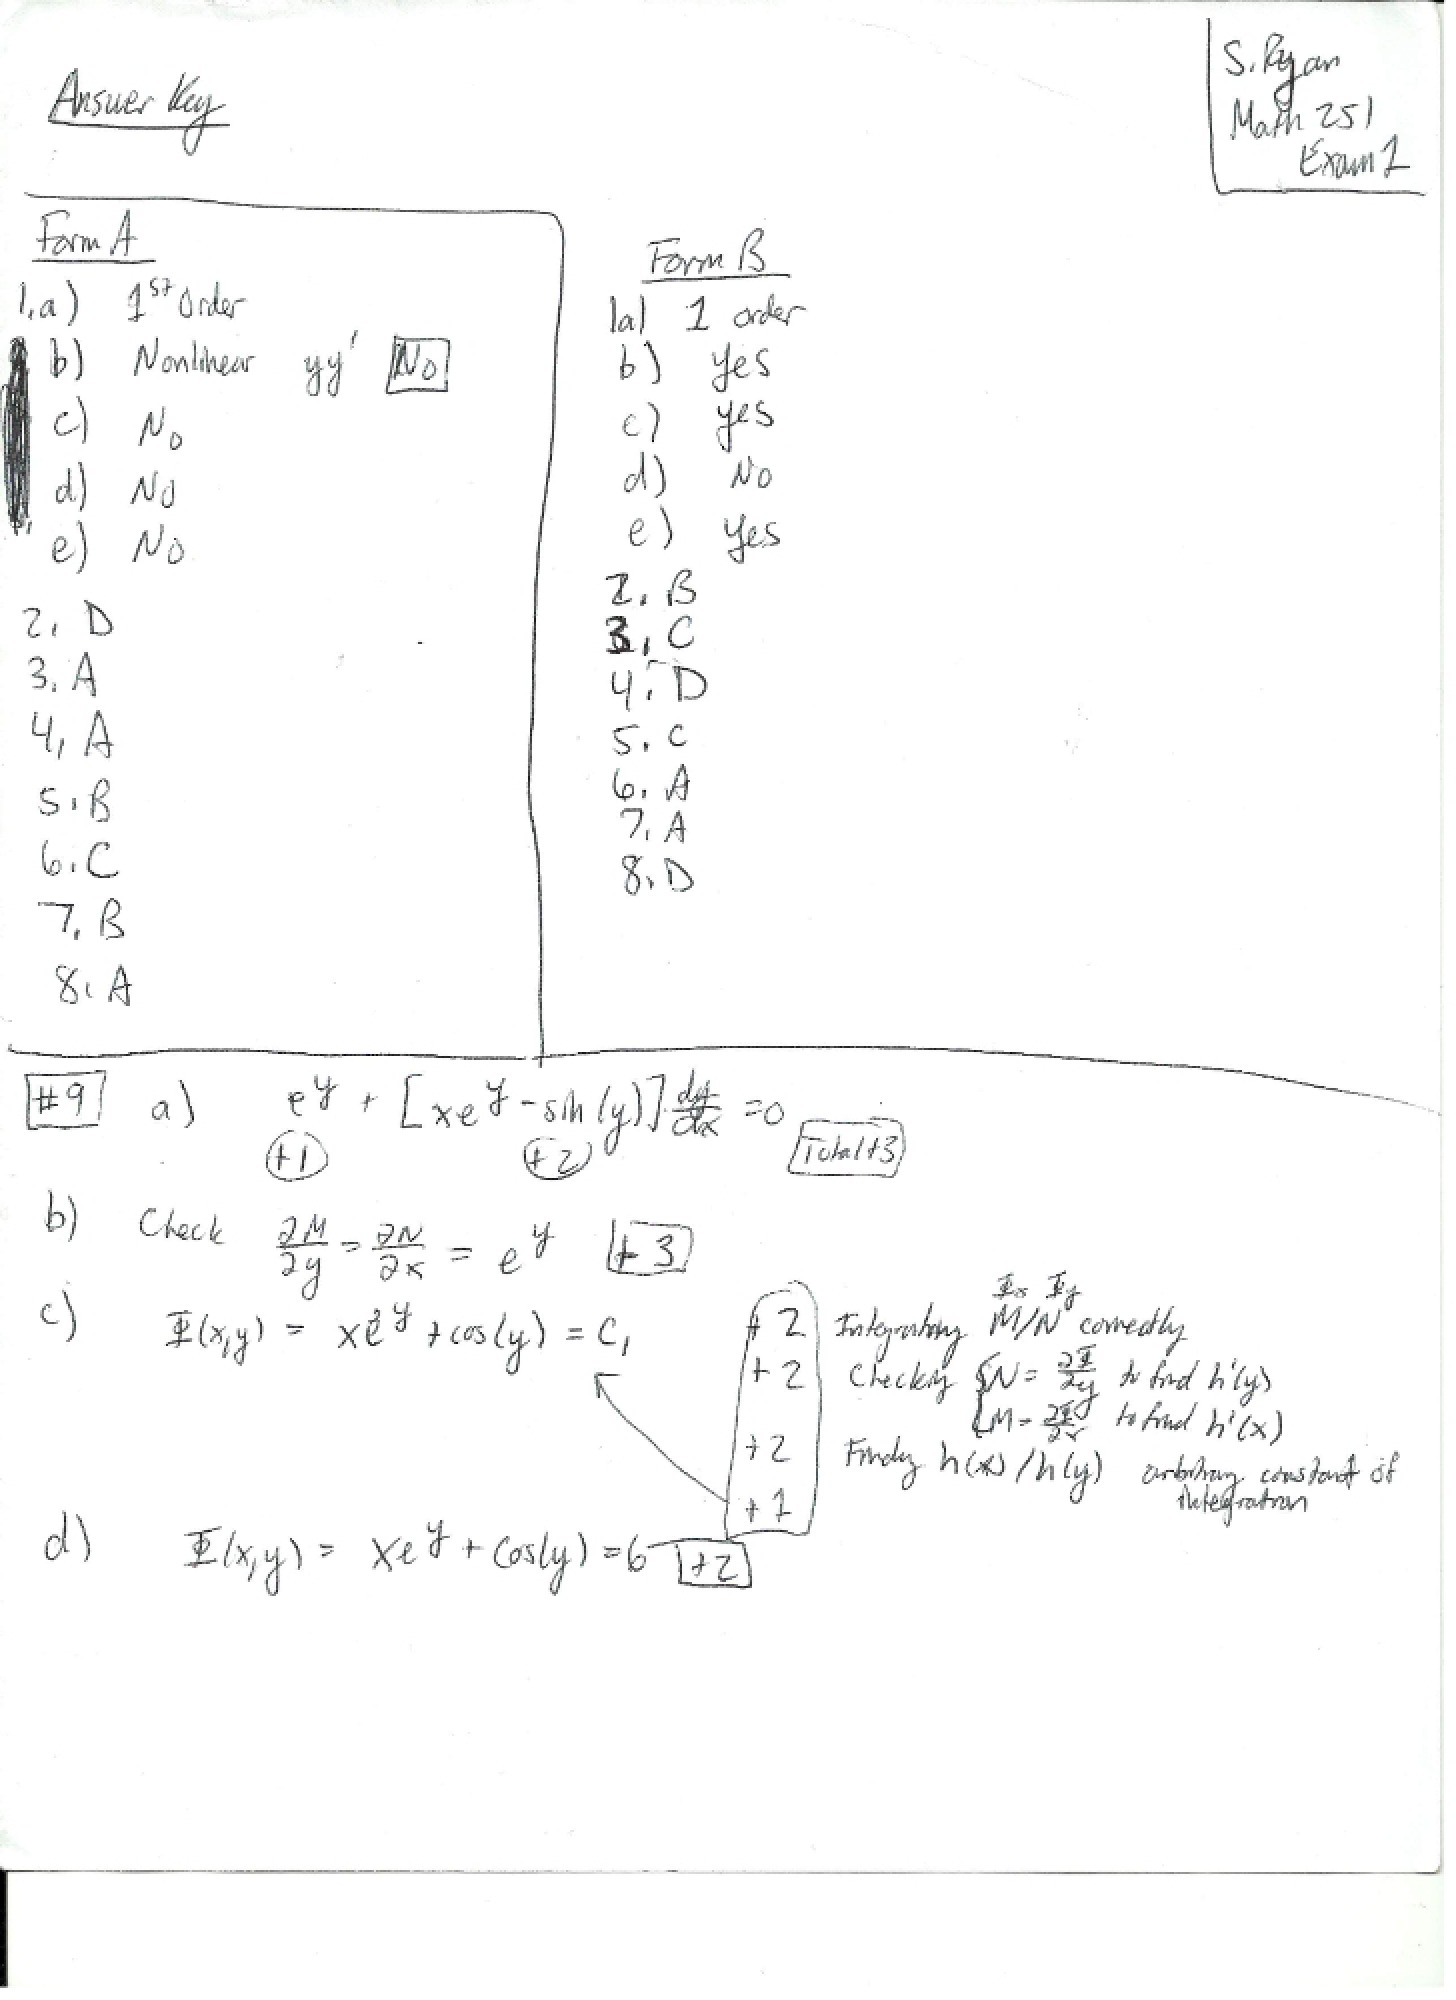 Answer Key
S. Ryan
Math 251
Exam 1
Form A
1.a) 1st Order
b) Nonlinear yy' No
c) No
d) No
e) No
2. D
3. A
4. A
5. B
6. C
7. B
8. A
Form B
1a) 1 order
b) yes
c) yes
d) No
e) yes
2. B
3. C
4. D
5. C
6. A
7. A
8. D
#9 a) e^y + [xe^y - sin(y)] dy/dx = 0
+1 +2 Total +3
b) Check ∂M/∂y = ∂N/∂x = e^y +3
c) Φ(x,y) = xe^y + cos(y) = C₁
+2 Integrating M/N correctly
Φx Φy
+2 Checking { N = ∂Φ/∂y to find h'(y)
M = ∂Φ/∂x to find h'(x)
+2 Finding h(x)/h(y)
+1 arbitrary constant of
integration
d) Φ(x,y) = xe^y + cos(y) = 6 +2